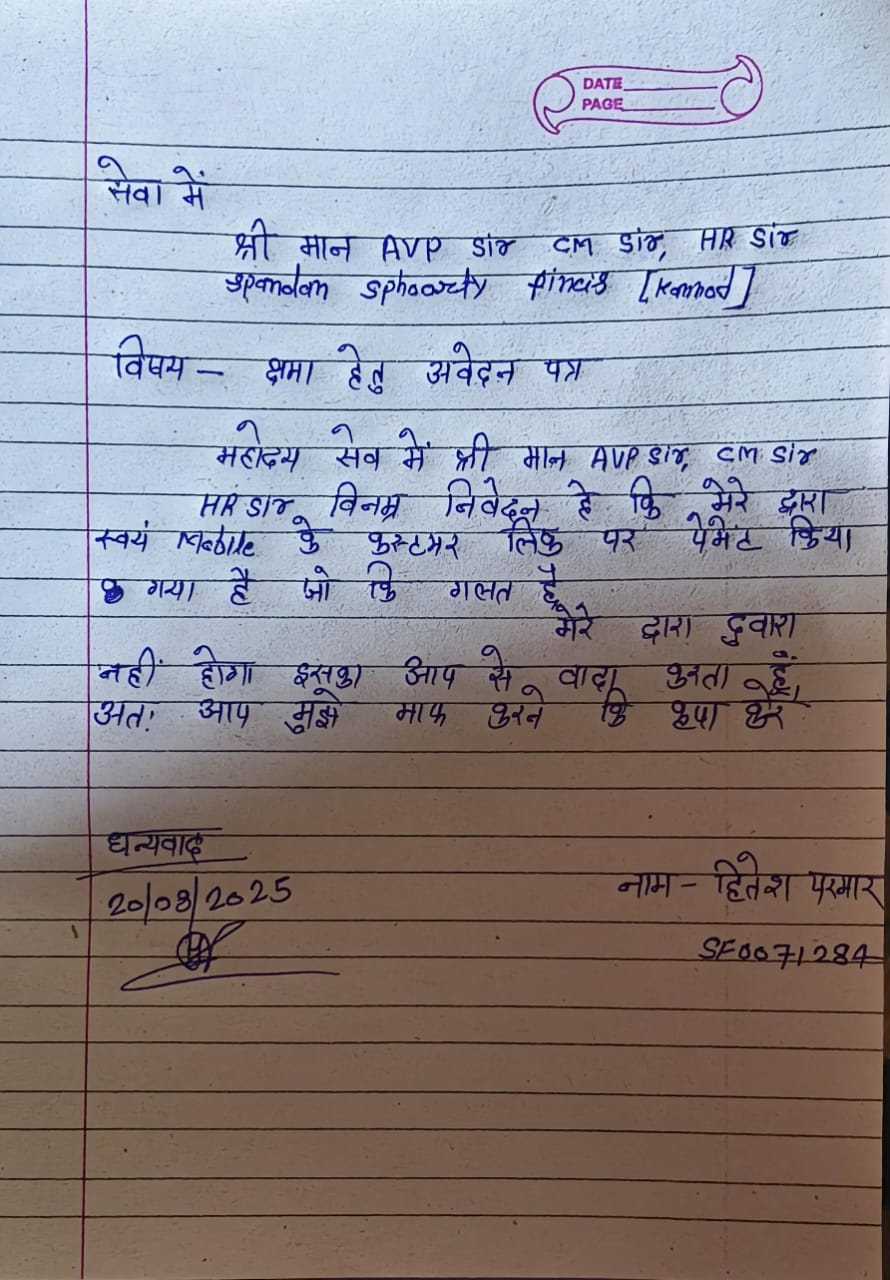 DATE
PAGE
सेवा में
श्री मान AVP sir CM sir, HR sir
spandan sphoorty fincis [Kannod]
विषय - क्षमा हेतु अवेदन पत्र
महोदय सेव में श्री मान AVP sir, CM sir
HR sir विनम्र निवेदन है कि मेरे द्वारा
स्वयं Mobile के कस्टमर लिंक पर पेमेंट किया
गया है जो कि गलत है,
मेरे द्वारा दुवारा
नहीं होगा इसका आप से वादा करता हूँ,
अतः आप मुझे माफ करने कि कृपा करे
धन्यवाद
20/08/2025
नाम - हितेश परमार
SF0071284